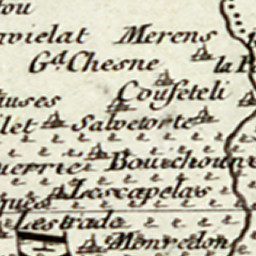 tou
avielat Merens
G.d Chesne la
Couseteli
uses
let Salvetorte
uerrie Bouichoune
Lescapelas
ques
Lestrade
Monredon